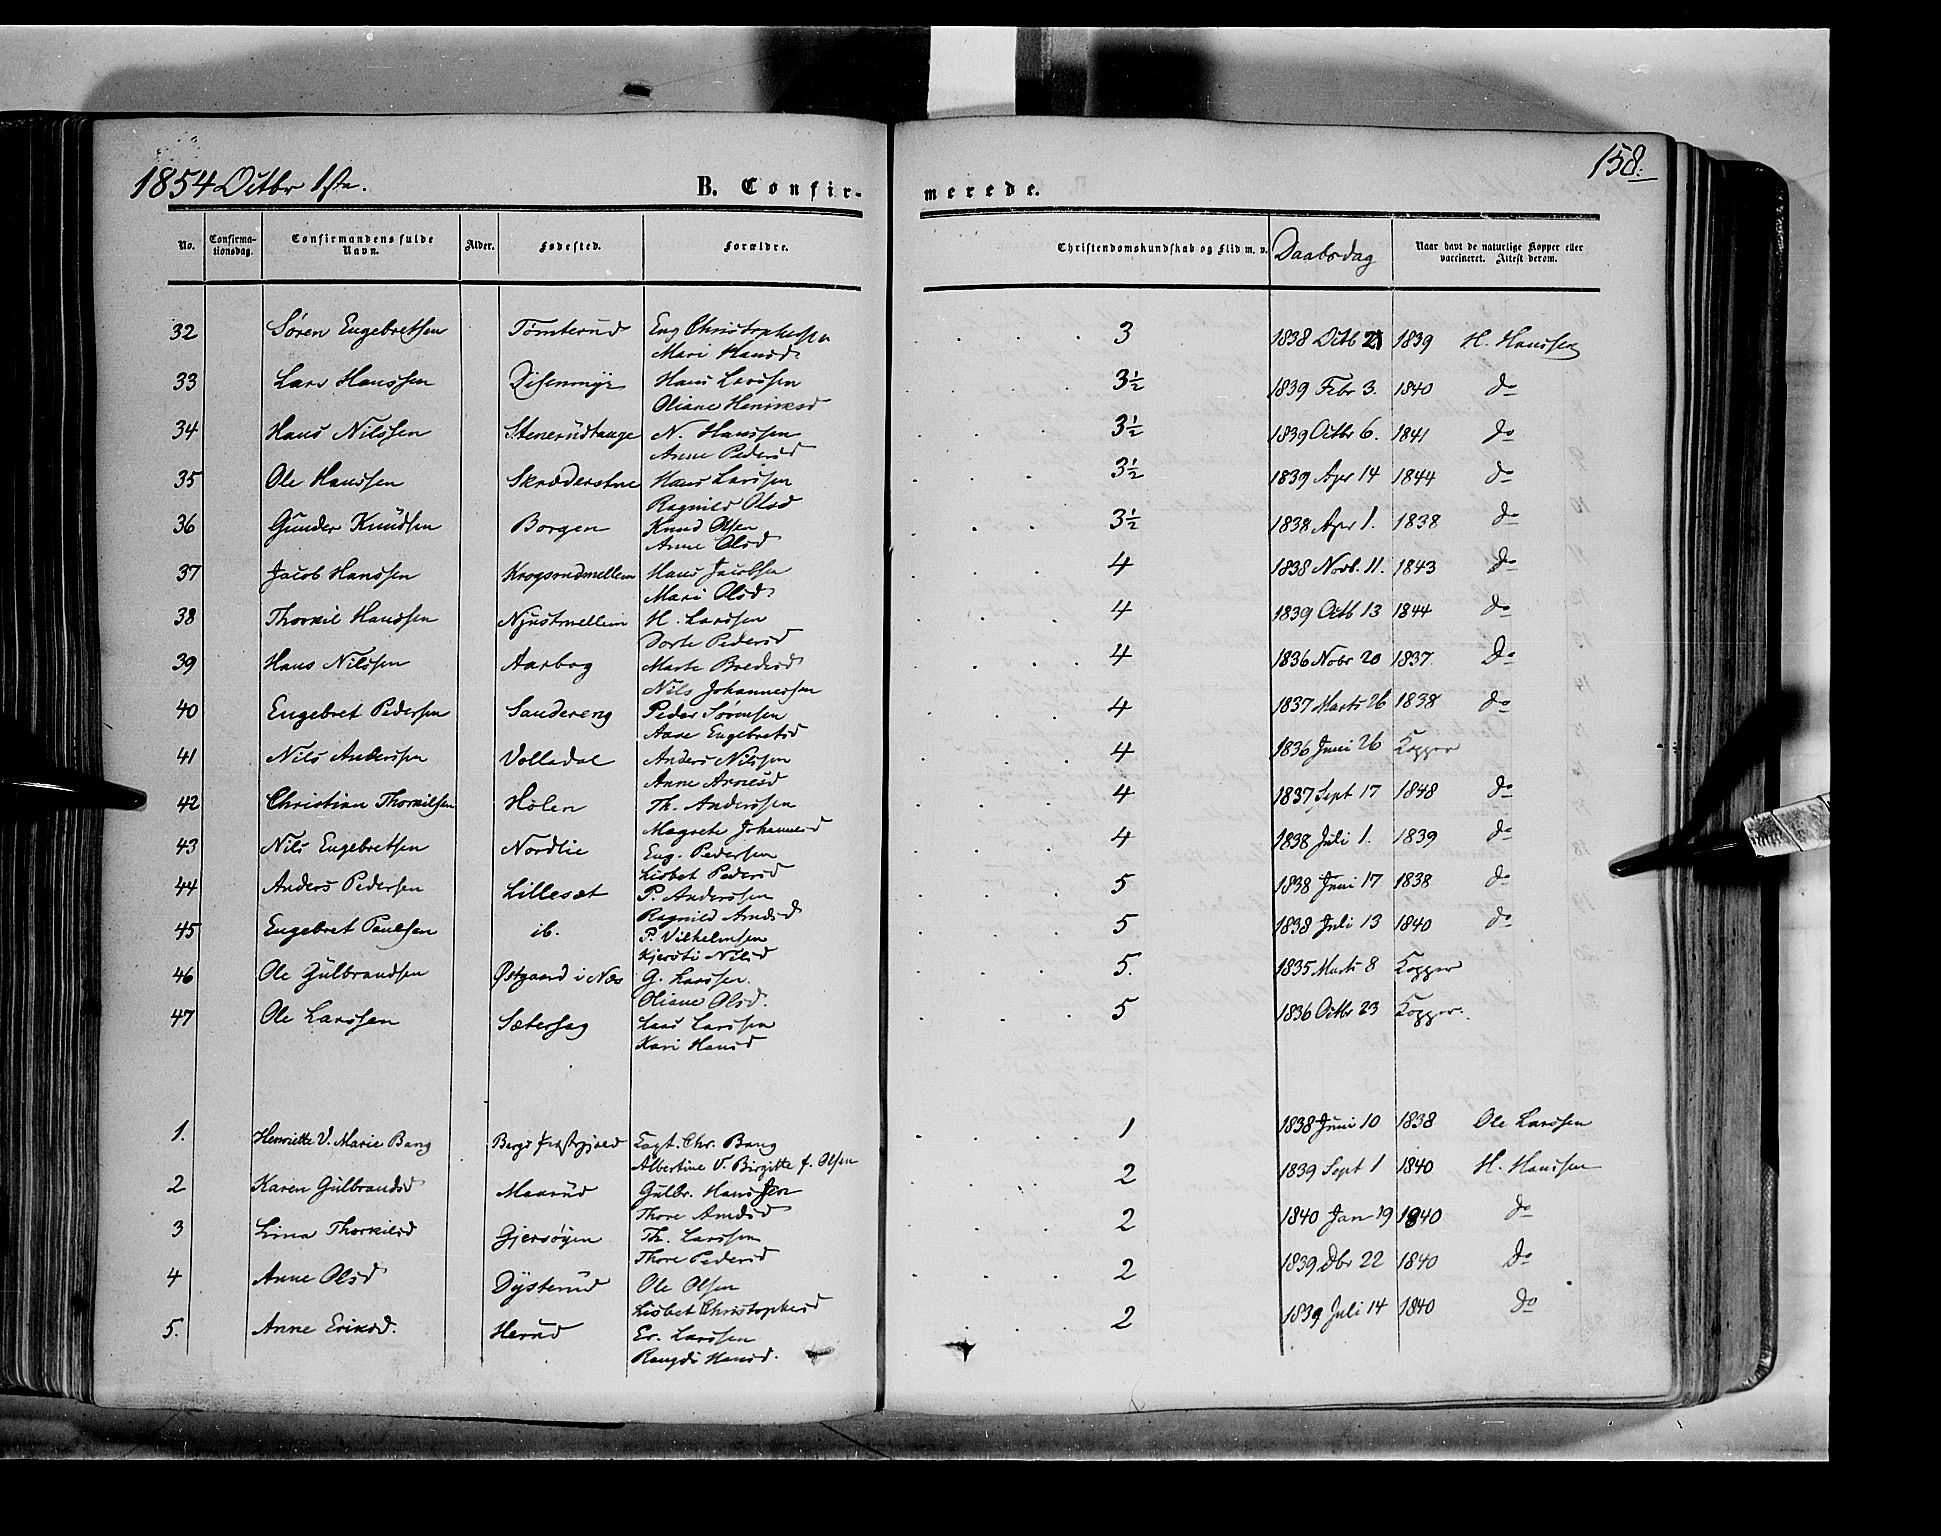 158.
1854 Octbr 1ste. B. Confirmerede.
No. Confirmationsdag. Confirmandens fulde Navn. Alder. Fødested. Forældre. Christendomskundskab og Flid m. v. Daabsdag Naar havt de naturlige Kopper eller vaccineret. Attest derom.
32 Søren Engebretsen Tømterud Eng Christophersen 3 1838 Octb 21 1839 H. Hanssen
Mari Hansd
33 Lars Hanssen Disenmyr Hans Larssen 3½ 1839 Febr 3. 1840 do
Oliane Henriksd
34 Hans Nilssen Stenerudtange N. Hanssen 3½ 1839 Octbr 6. 1841 do
Anne Pedersd
35 Ole Hanssen Skrædderstue Hans Larssen 3½ 1839 Apr 14 1844 do
Ragnild Olsd
36 Gunder Knudsen Borgen Knud Olsen 3½ 1838 Apr 1. 1838 do
Anne Olsd
37 Jacob Hanssen Krogsrudmellem Hans Jacobsen 4 1838 Novb. 11. 1843 do
Mari Olsd.
38 Thorkil Hanssen Njustmellem H. Larssen 4 1839 Octb 13 1844 do
Dorte Pedersd
39 Hans Nilssen Aarbog Marte Bredesd 4 1836 Nobr 20 1837. Do
Nils Johannessen
40 Engebret Pedersen Sandereng Peder Sørensen 4 1837 Marts 26 1838 do
Aase Engebretsd
41 Nils Anderssen Volladal Anders Nilssen 4 1836 Juni 26 Kopper
Anne Arnesd
42 Christian Thorkilsen Holen Th. Anderssen 4 1837 Sept 17 1848 do
Magrete Johannesd
43 Nils Engebretsen Nordlie Eng. Pedersen 4 1838 Juli 1. 1839 do
Lisbet Pedersd
44 Anders Pedersen Lillesæt P. Anderssen 5 1838 Juni 17 1838 do
Ragnild Arnesd
45 Engebret Paulsen ib. P. Vilhelmsen 5 1838 Juli 13 1840 do
Kjersti Nilsd
46 Ole Gulbrandsen Østgaard i Næs G. Larssen. 5. 1835 Marts 8 Kopper
Oliane Olsd.
47 Ole Larssen Sætersag Lars Larssen 5 1836 Octbr 23 Kopper.
Kari Hansd
1. Henriette V. Marie Bang Capt. Chr. Bang 1 1838 Juni 10 1838 Ole Larssen
Albertine V. Birgitte f. Olsen
2 Karen Gulbrandsd Maarud Gulbr. Hanssen 2 1839 Sept 1 1840 H. Hanssen
Thore Arnesd
3 Lina Thorkilsd Gjersøyen Th. Larssen 2 1840 Jan 19 1840 do
Thore Pedersd
4 Anne Olsd Dysterud Ole Olsen 2 1839 Dbr 22 1840 Do
Lisbet Christophersd
5. Anne Eriksd. Herud Er. Larssen 2 1839 Juli 14 1840 do
Rangdi Hansd.